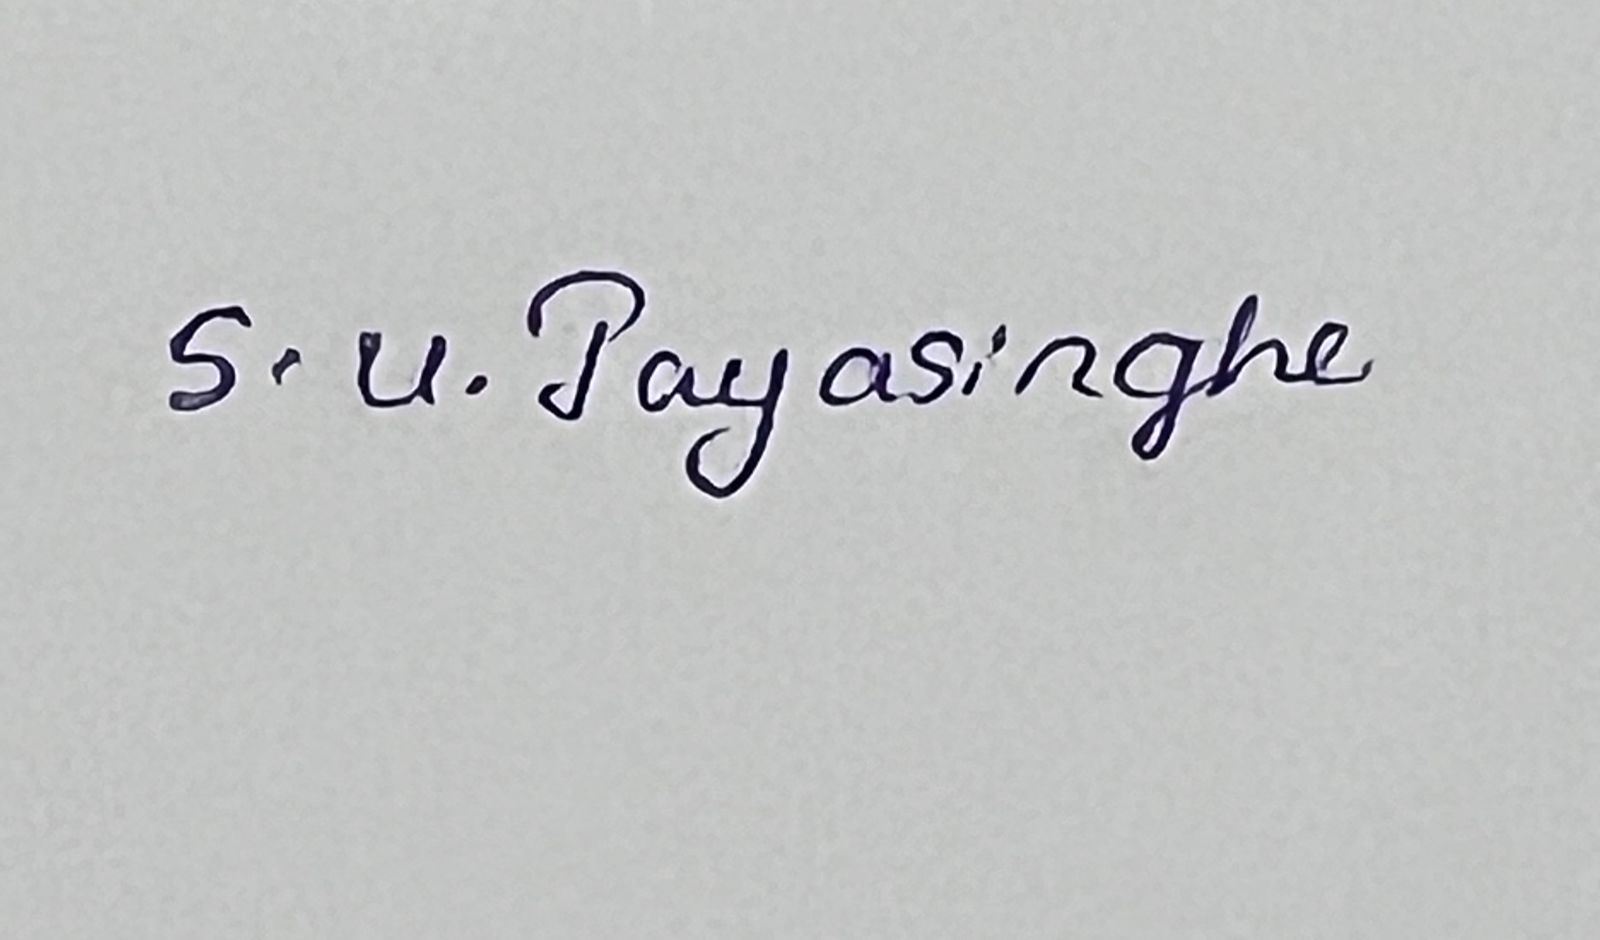 S. U. Jayasinghe